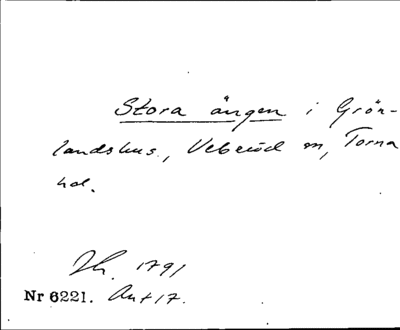 Stora ängen i Grön-
landshus, Veberöd sn, Torna
hd.
Jh. 1791
Nr 6221. Akt 17.